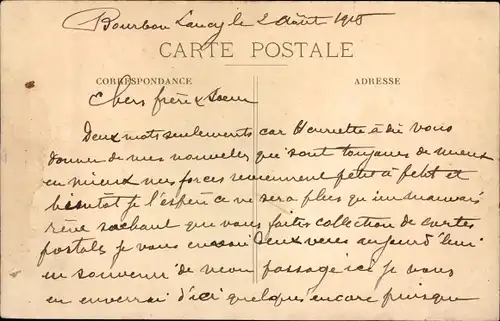 Bourbon Lancy le 2 Août 1918
CARTE POSTALE
CORRESPONDANCE
ADRESSE
Chers frère & Soeur
Deux mots seulements car Henriette à dû vous
donner de mes nouvelles qui sont toujours de mieux
en mieux mes forces reviennent petit à petit et
bientôt je l'espère ce ne sera plus qu'un mauvais
rêve sachant que vous faites collection de cartes
postales je vous envoi deux vues aujourd'hui
en souvenir de mon passage ici je vous
en enverrai d'ici quelques encore puisque